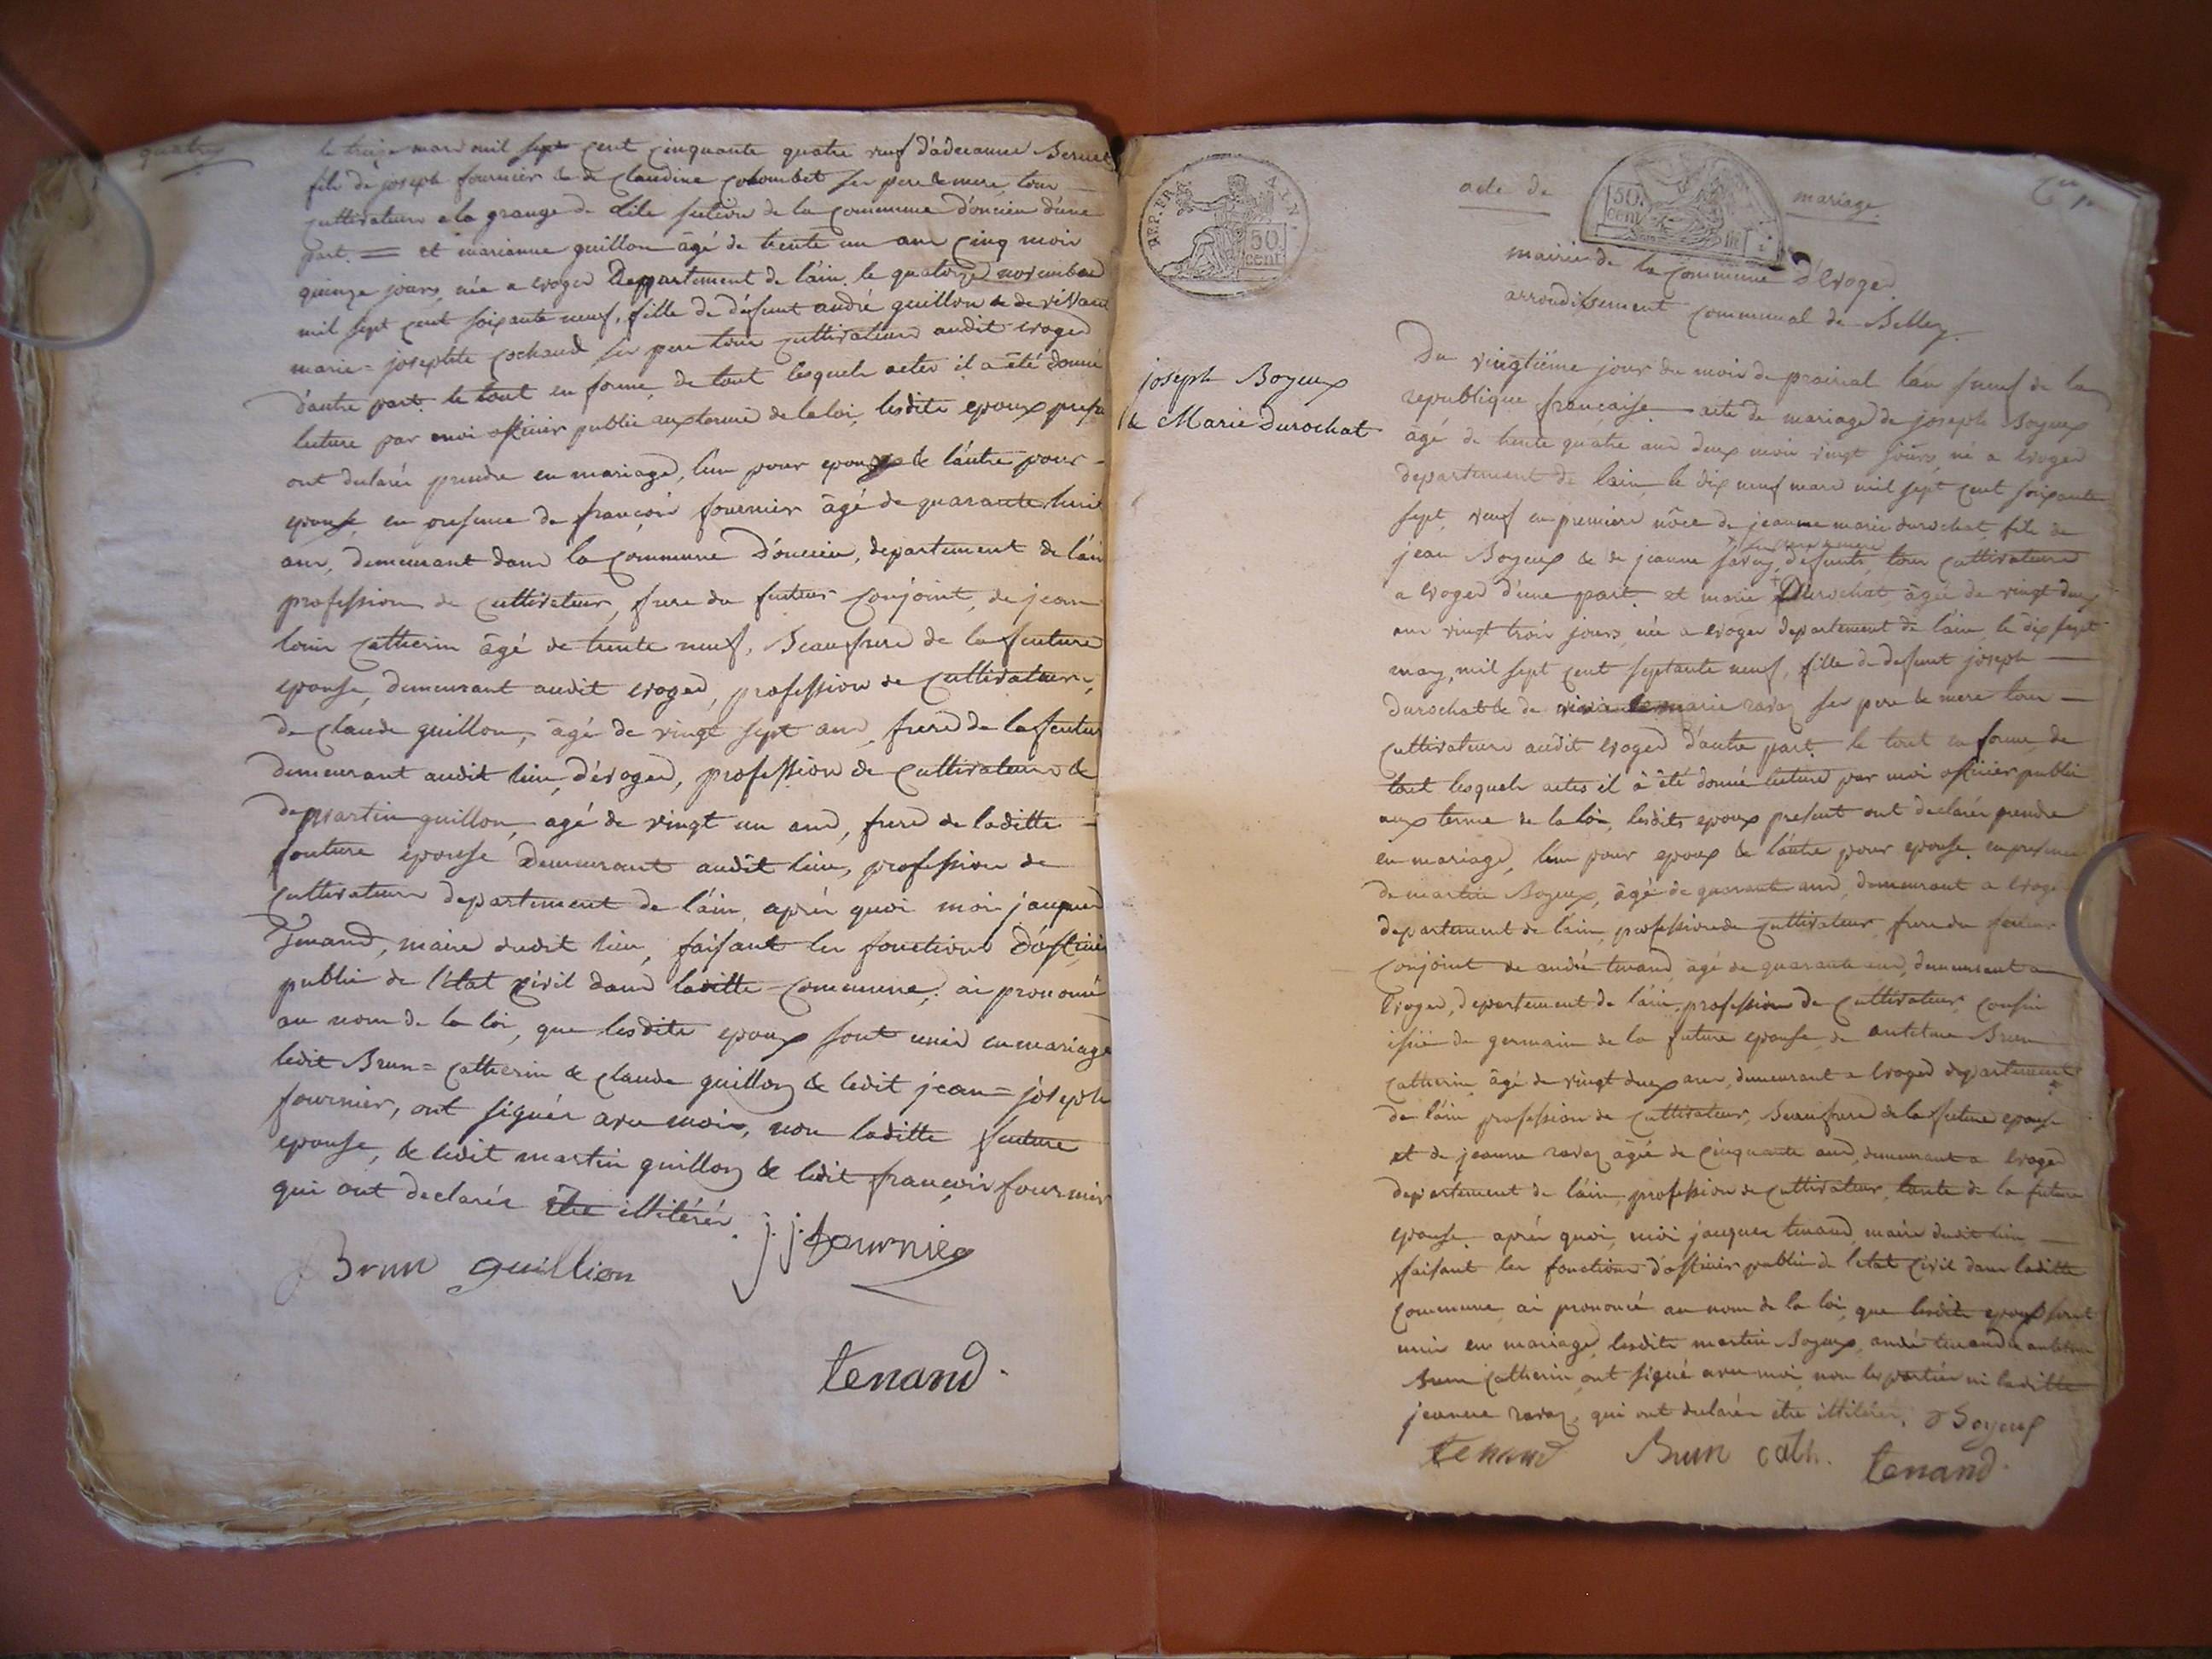 quatre
le treize mars mil sept cent cinquante quatre veuf d'adrianne Bernet
fils de joseph fournier & de Claudine colombet ses pere & mere, tous
cultivateurs a la grange de lile section de la commune d'oncieu d'une
part. = et marianne guillon âgé de trente un ans cinq mois
quinze jours, née a evoges Deppartement de l'ain, le quatorze novembre
mil sept cent soixante neuf, fille de défunt andré guillon & de vivant
marie = josephte cochand ses pere tous cultivateurs audit evoges
d'autre part. le tout en forme, de tout lesquels actes il a été donné
lecture par moi officier public aux terme de la loi, lesdits epoux presen
ont declarés prendre en mariage, l'un pour epoux & l'autre pour -
epouse, en presence de françois fournier âgé de quarante huit
ans, demeurant dans la commune D'oncieu, departement de l'ain
profession de cultivateur, frere du futeur conjoint, de jean
louis catherin âgé de trente neuf, Beaufrere de la feuture
epouse, demeurant audit evoges, profession de cultivateur,
de claude guillon, âgé de vingt sept ans, frere de la feutur
demeurant audit lieu, d'évoges, profession de cultivateur &
de martin guillon, agé de vingt un ans, frere de laditte -
fouture epouse Demeurant audit lieu, profession de
cultivateur departement de l'ain, après quoi moi jacques
Tenand, maire dudit lieu, faisant les fonctions D'officie
public de l'état civil dans laditte commune, ai prononcé
au nom de la loi, que lesdits epoux sont unis en mariage
ledit Brun = catherin & claude guillon & ledit jean = joseph
fournier, ont signés avec moi, non laditte feuture
epouse, & ledit martin guillon & ledit françois fournier
qui ont declarés être illitérés.
j.j. fournier
Brun guillion
tenand.
REP. FRA
AIN
50.
cent.
joseph Boyeux
& Marie Durochat
acte de mariage.
50.
cent
mairie de la Commune D'Evoges
arrondissement communal de Belley
Du vingtiéme jour du mois de prairial l'an neuf de la
republique française acte de mariage de joseph Boyeux
âgé de trente quatre ans deux mois vingt jours, né a evoges
departement de l'ain, le dix neuf mars mil sept cent soixante
sept, veuf en premiere nôce de jeanne marie durochat, fils de
ses pere & mere
jean Boyeux & de jeanne savey, defunts, tous cultivateurs
a evoges d'une part. et marie Durochat âgée de vingt deux
ans vingt trois jours, née a evoges departement de l'ain, le dix sept
may, mil sept cent septante neuf, fille de defunt joseph
durochat & de marie ravaz ses pere & mere tous
cultivateurs audit evoges d'autre part. le tout en forme, de
tout lesquels actes il à été donné lecture par moi officier public
aux terme de la loi, lesdits epoux present ont declarés prendre
en mariage, l'un pour epoux & l'autre pour epouse. en presence
de martin Boyeux, âgé de quarante ans, demeurant a evoges
departement de l'ain, profession de cultivateur, frere du futeur
conjoint de andré tenand, âgé de quarante ans, demeurant a
Evoges, departement de l'ain, profession de cultivateur, cousin
issüe de germain de la future epouse, de antelme Brun
catherin, âgé de vingt deux ans, demeurant a Evoges departement
de l'ain profession de cultivateur, Beaufrere de la future epouse
et de jeanne ravaz âgée de cinquante ans, demeurant a Evoges
departement de l'ain, profession de cultivateur, tante de la future
epouse. après quoi, moi jacques tenand, maire dudit lieu
faisant les fonctions d'officier public de l'etat civil dans laditte
commune, ai prononcé au nom de la loi, que lesdits epoux sont
unis en mariage, lesdits martin Boyeux, andré tenand & antelme
Brun catherin, ont signé avec moi, non les parties ni laditte
jeanne ravaz, qui ont declarés être illiterés. Boyeux
tenand Brun cath. tenand.